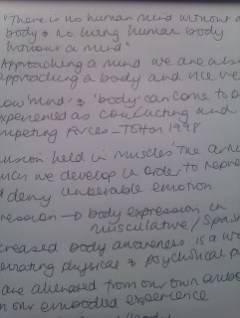 "There is no human mind without a
body & no living human body
without a mind"
Approaching a mind we are also
approaching a body and vice ve
ow 'mind' & 'body' can come to b
xperienced as conflicting and
mpeting forces - Totton 1998
ension held in muscles 'The
we develop in order to repre
deny unbearable emotion
ression → body expression in
musculative /
creased body awareness is a w
physical & psychological
are alienated from our own
n our embodied experience